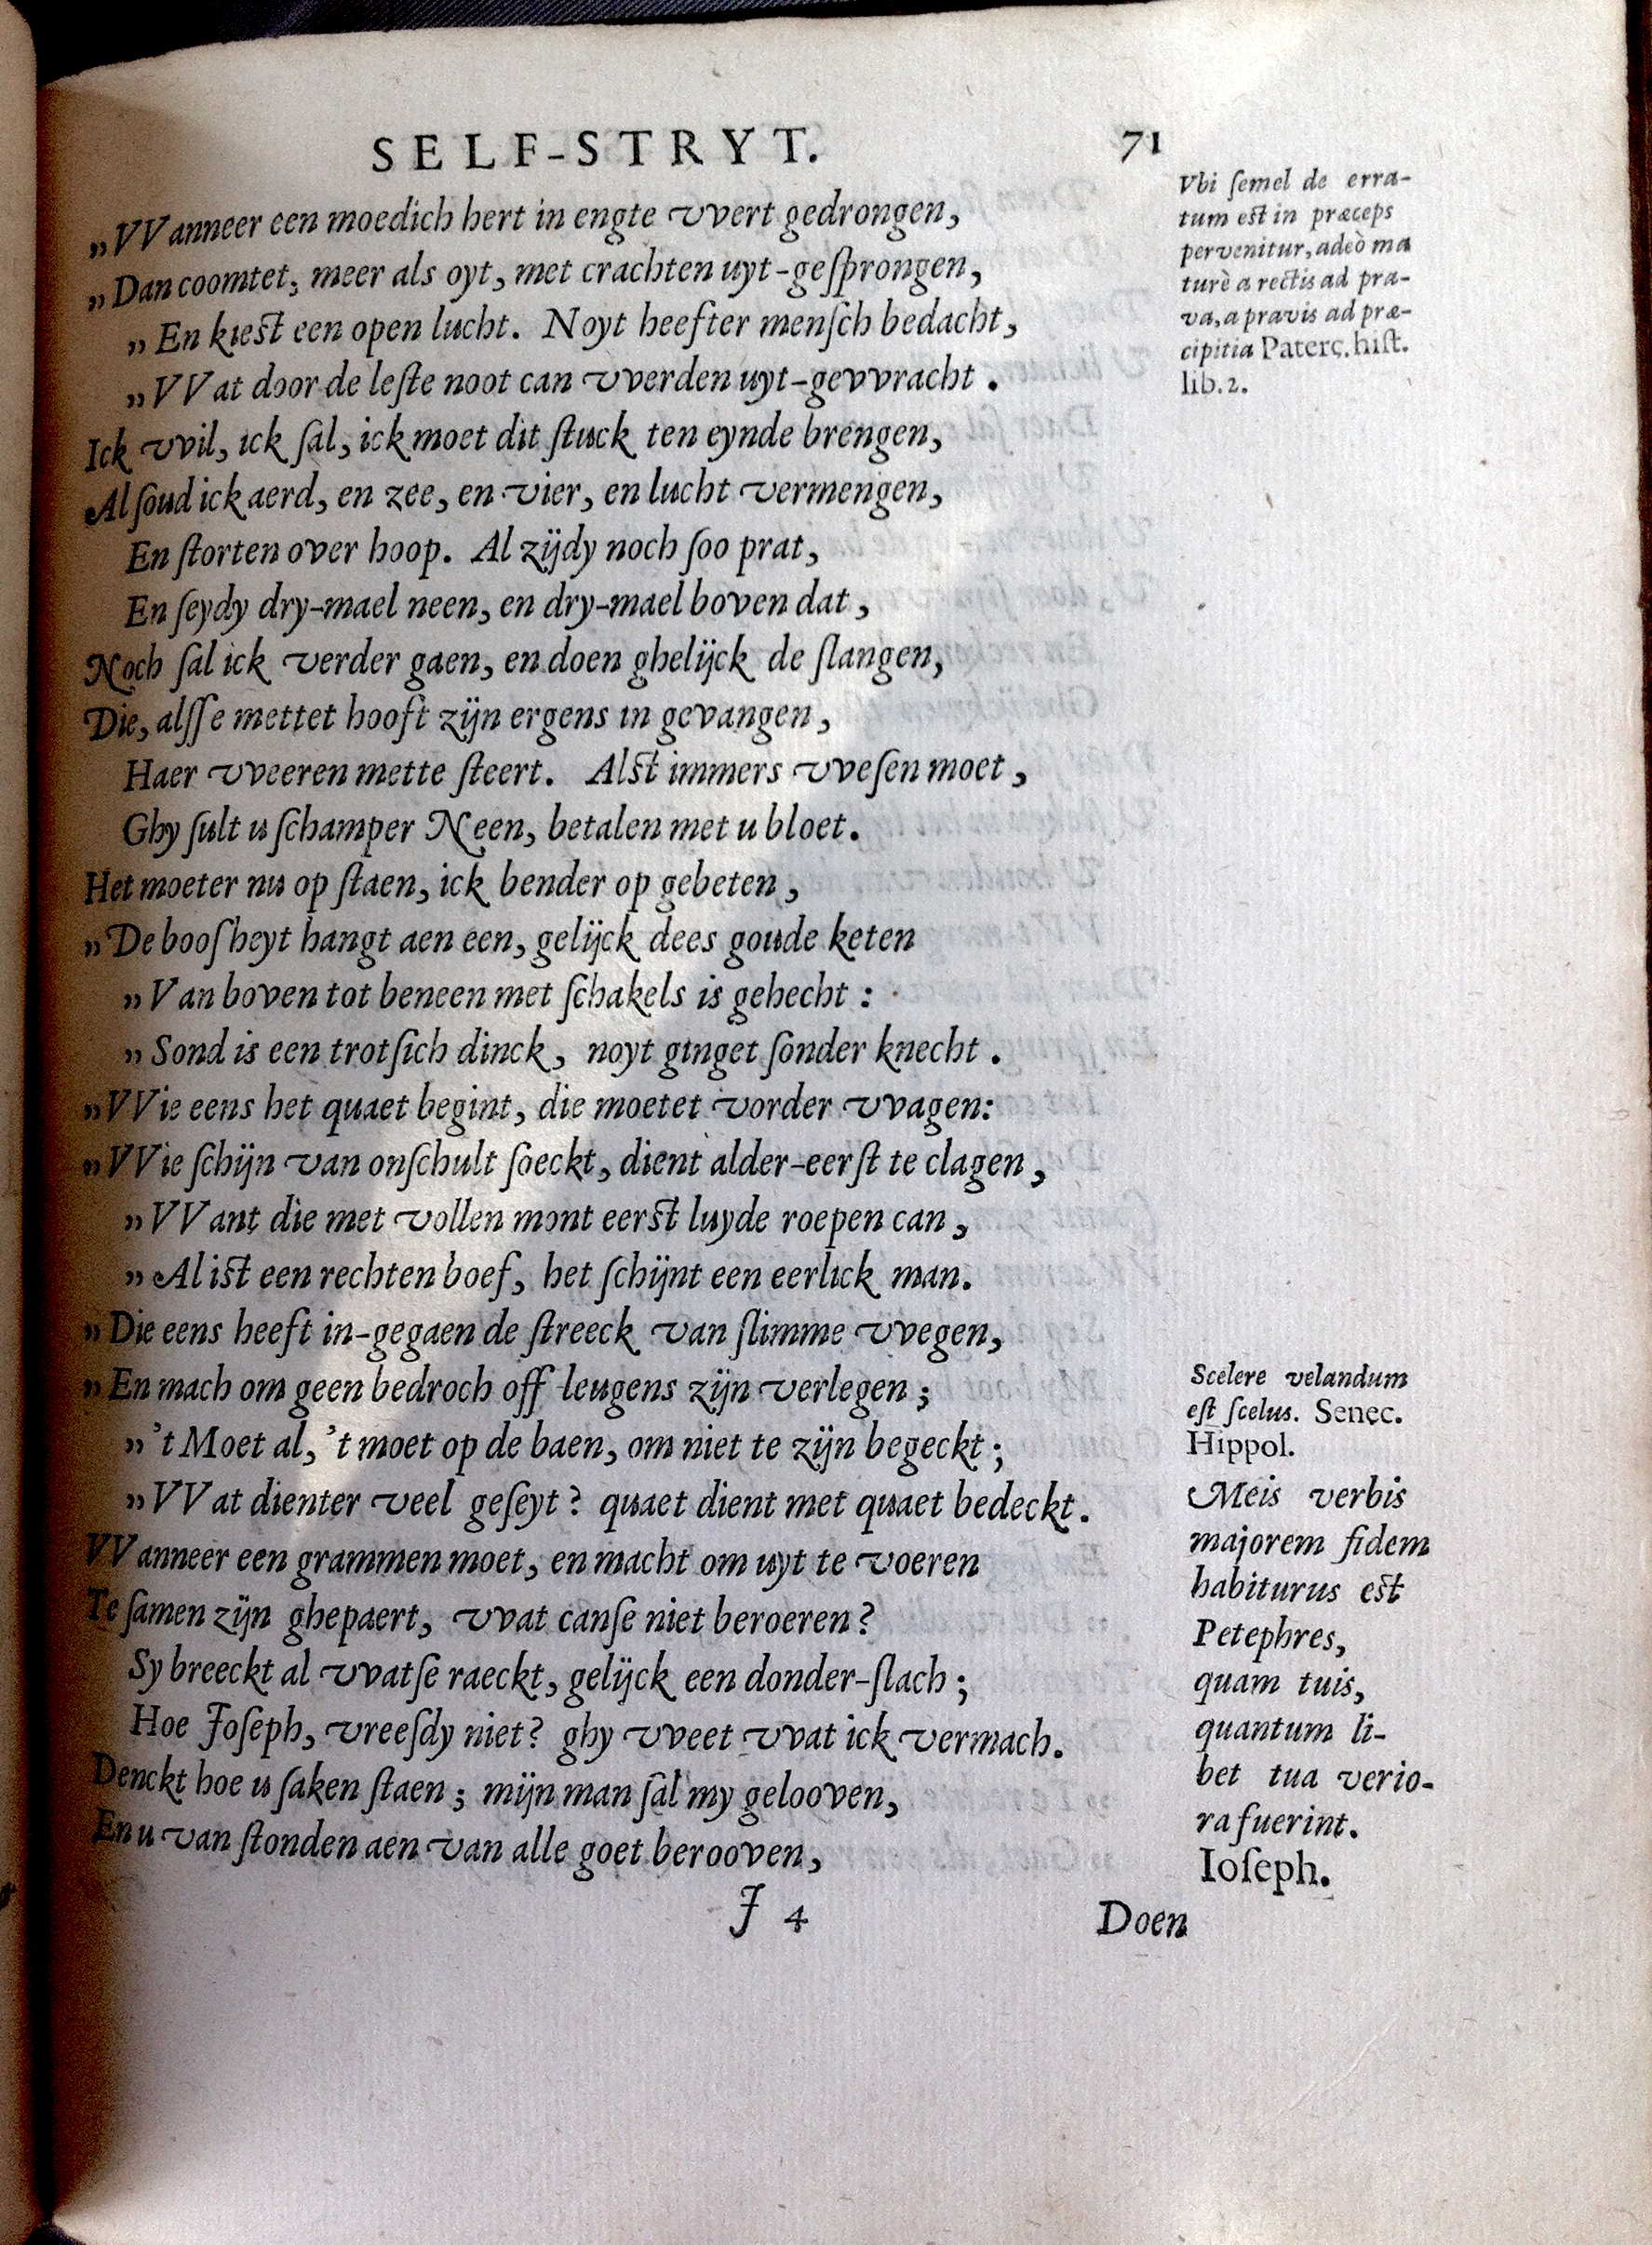 SELF-STRYT. 71
„VVanneer een moedich hert in engte vvert gedrongen,
„Dan coomtet, meer als oyt, met crachten uyt-geſprongen,
„En kieſt een open lucht. Noyt heefter menſch bedacht,
„VVat door de leſte noot can vverden uyt-gevvracht.
Ick vvil, ick ſal, ick moet dit ſtuck ten eynde brengen,
Al ſoud ick aerd, en zee, en vier, en lucht vermengen,
En ſtorten over hoop. Al zijdy noch ſoo prat,
En ſeydy dry-mael neen, en dry-mael boven dat,
Noch ſal ick verder gaen, en doen ghelijck de ſlangen,
Die, alſſe mettet hooft zijn ergens in gevangen,
Haer vveeren mette ſteert. Alſt immers vveſen moet,
Ghy ſult u ſchamper Neen, betalen met u bloet.
Het moeter nu op ſtaen, ick bender op gebeten,
„De booſheyt hangt aen een, gelijck dees goude keten
„Van boven tot beneen met ſchakels is gehecht:
„Sond is een trotſich dinck, noyt ginget ſonder knecht.
„VVie eens het quaet begint, die moetet vorder vvagen:
„VVie ſchijn van onſchult ſoeckt, dient alder-eerſt te clagen,
„VVant die met vollen mont eerſt luyde roepen can,
„Al iſt een rechten boef, het ſchijnt een eerlick man.
„Die eens heeft in-gegaen de ſtreeck van ſlimme vvegen,
„En mach om geen bedroch off leugens zijn verlegen;
„'t Moet al, 't moet op de baen, om niet te zijn begeckt;
„VVat dienter veel geſeyt? quaet dient met quaet bedeckt.
VVanneer een grammen moet, en macht om uyt te voeren
Te ſamen zijn ghepaert, vvat canſe niet beroeren?
Sy breeckt al vvatſe raeckt, gelijck een donder-ſlach;
Hoe Joſeph, vreeſdy niet? ghy vveet vvat ick vermach.
Denckt hoe u ſaken ſtaen; mijn man ſal my gelooven,
En u van ſtonden aen van alle goet berooven,
J 4
Doen
Vbi ſemel de erra-
tum eſt in præceps
pervenitur, adeò ma
turè a rectis ad pra-
va, a pravis ad præ-
cipitia Paterc. hiſt.
lib. 2.
Scelere velandum
eſt ſcelus. Senec.
Hippol.
Meis verbis
majorem fidem
habiturus eſt
Petephres,
quam tuis,
quantum li-
bet tua verio-
ra fuerint.
Ioſeph.